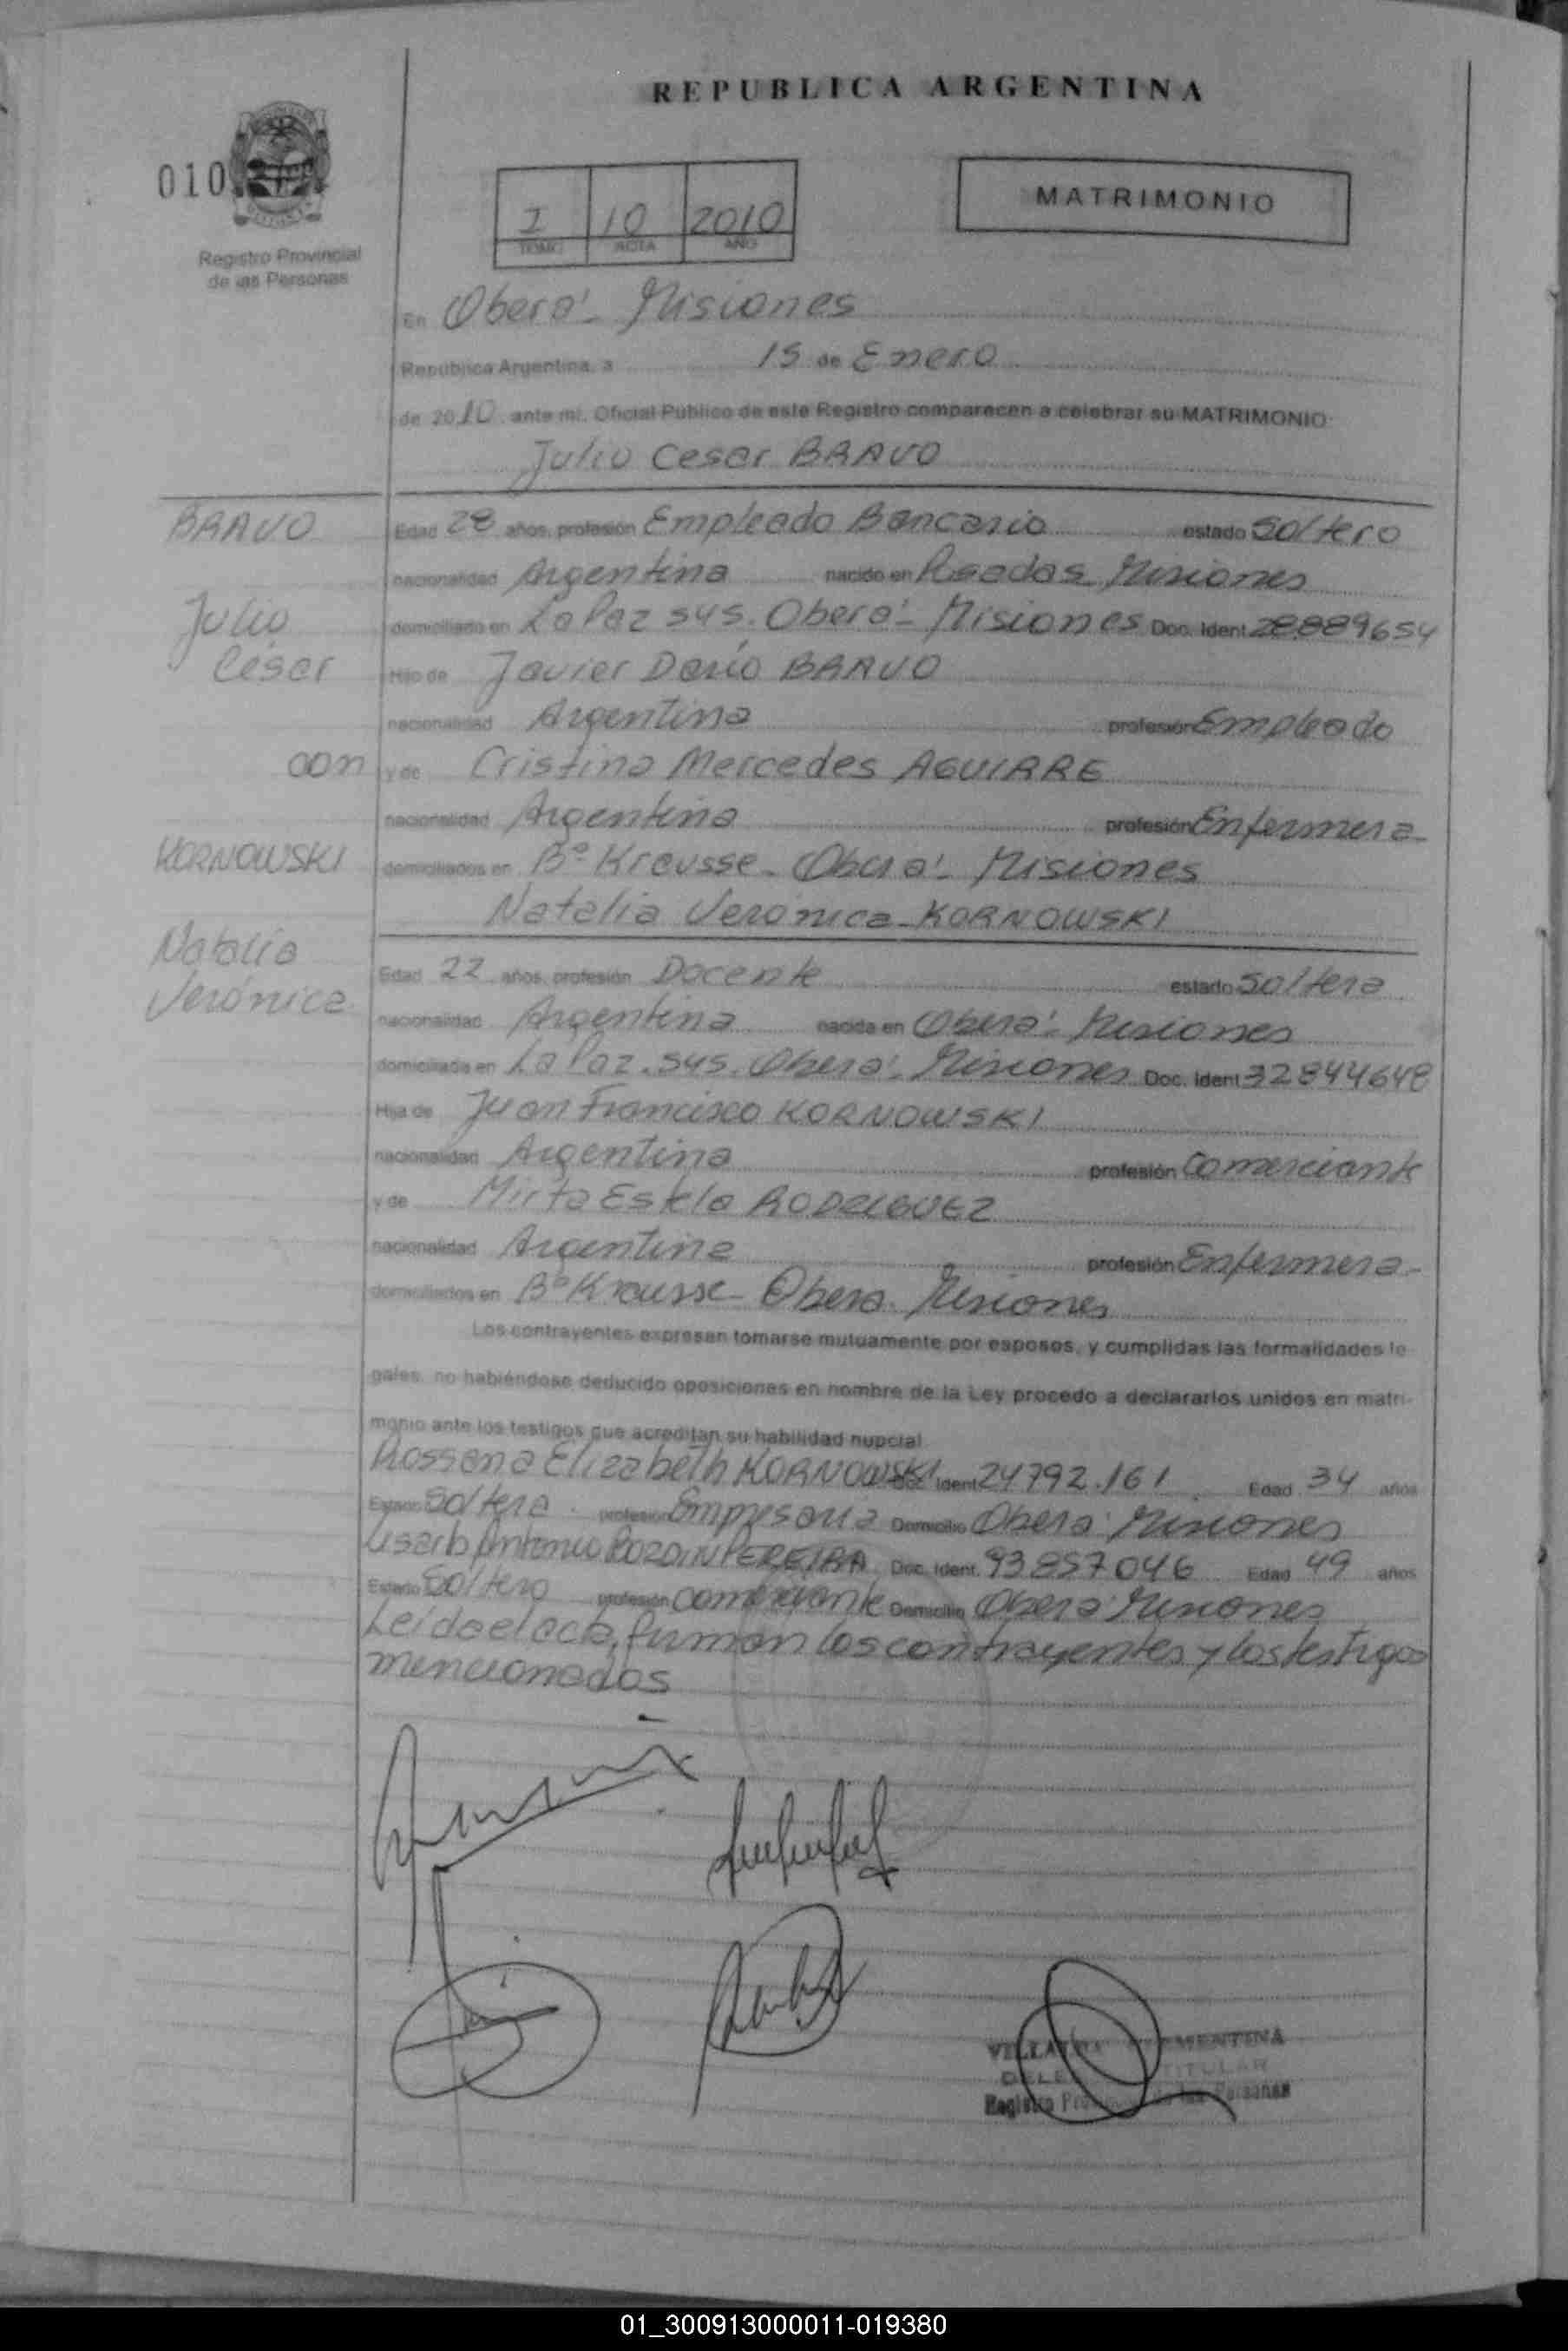 REPUBLICA ARGENTINA
010
Registro Provincial
de las Personas
I 10 2010
TOMO ACTA AÑO
MATRIMONIO
En Oberá - Misiones
República Argentina, a 15 de Enero
de 2010 ante mí, Oficial Público de este Registro comparecen a celebrar su MATRIMONIO
Julio Cesar BRAVO
BRAVO
Julio
César
con
KORNOWSKI
Natalia
Verónica
Edad 28 años, profesión Empleado Bancario estado Soltero
nacionalidad Argentina nacido en Posadas Misiones
domiciliado en La Paz sys. Oberá - Misiones Doc. Ident 28889654
Hijo de Javier Darío BRAVO
nacionalidad Argentina profesión Empleado
y de Cristina Mercedes AGUIRRE
nacionalidad Argentina profesión Enfermera
domiciliados en Bº Krausse - Oberá - Misiones
Natalia Verónica KORNOWSKI
Edad 22 años, profesión Docente estado Soltera
nacionalidad Argentina nacida en Oberá - Misiones
domiciliada en La Paz. sys. Oberá - Misiones Doc. Ident 32844648
Hija de Juan Francisco KORNOWSKI
nacionalidad Argentina profesión Comerciante
y de Mirta Estela RODRIGUEZ
nacionalidad Argentina profesión Enfermera
domiciliados en Bº Krausse - Obera Misiones
Los contrayentes expresan tomarse mutuamente por esposos, y cumplidas las formalidades le-
gales, no habiéndose deducido oposiciones en nombre de la Ley procedo a declararlos unidos en matri-
monio ante los testigos que acreditan su habilidad nupcial
Rossana Elizabeth KORNOWSKI Doc. Ident 24792.161 Edad 34 años
Estado Soltera profesión Empresaria Domicilio Oberá Misiones
Antonio PEREIRA Doc. Ident. 93857046 Edad 49 años
Estado Soltero profesión comerciante Domicilio Oberá Misiones
Leída el acta, firman los contrayentes y los testigos
mencionados
TITULAR
Registro de las Personas
01_300913000011-019380